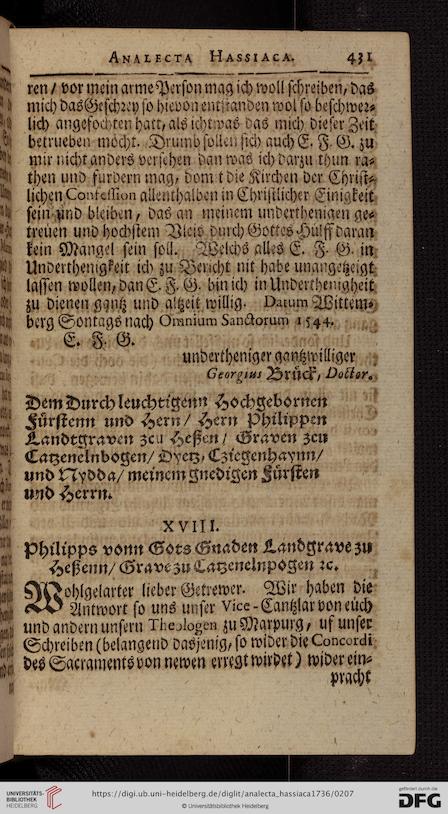 ANALECTA HASSIACA. 431
ren / vor mein arme Person mag ich woll schreiben, das
mich das Geschrey so hievon entstanden wol so beschwer-
lich angefochten hatt, als ichtwas das mich dieser Zeit
betrueben möcht. Drumb sollen sich auch E. F. G. zu
mir nicht anders versehen dan was ich darzu thun ra-
then und furdern mag, domit die Kirchen der Christ-
lichen Confession allenthalben in Christlicher Einigkeit
sein und bleiben, das an meinem underthenigen ge-
treuen und hochstem Vleis durch Gottes Hülff daran
kein Mangel sein soll. Welchs alles E. F. G. in
Underthenigkeit ich zu Bericht nit habe unangetzeigt
lassen wollen, dan E. F. G. bin ich in Underthenigheit
zu dienen gantz und altzeit willig. Datum Wittem-
berg Sontags nach Omnium Sanctorum 1544.
E. F. G.
undertheniger gantzwilliger
Georgius Brück, Doctor.
Dem Durchleuchtigenn Hochgebornen
Fürstenn und Hern / Hern Philippen
Landtgraven zcu Heßen / Graven zcu
Catzenelnbogen / Dyetz, Cziegenhaynn /
und Nydda / meinem gnedigen Fürsten
und Herrn.
XVIII.
Philipps vonn Gots Gnaden Landgrave zu
Heßenn / Grave zu Catzenelnpogen ꝛc.
Wohlgelarter lieber Getrewer. Wir haben die
Antwort so uns unser Vice-Cantzlar von euch
und andern unsern Theologen zu Marpurg, uf unser
Schreiben (belangend dasjenig, so wider die Concordi
des Sacraments von newen erregt wirdet) wider ein-
pracht
UNIVERSITÄTS-
BIBLIOTHEK
HEIDELBERG
https://digi.ub.uni-heidelberg.de/diglit/analecta_hassiaca1736/0207
© Universitätsbibliothek Heidelberg
gefördert durch die
DFG